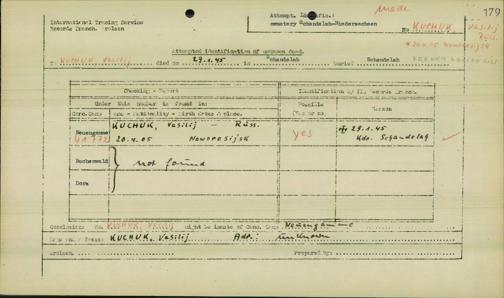 made
179
International Tracing Service
Records Branch. Arolsen
Attempt. Identific.:
cemetery Schandelah-Niedersachsen
No KUCHUK, Vasilij
Attempted identification of unknown dead.
KUCHUK, Vasilij died on 29.1.45 in Schandelah buried Schandelah
Checking - Report
Identification by II Records Branch.
Under this number is found in:
Possible
Reason
Conc.Camp Name - Nationality - Birth date & place.
(Yes or no)
KUCHUK, Vasilij - Russ.
Neuengamme
20.4.05 Noworosijsk
yes
29.1.45
Kdo. Schandelah
Buchenwald
not found
Dora
Conclusion: No. KUCHUK, Vasilij might be inmate of Conc. Camp Neuengamme
KUCHUK, Vasilij Adr.: unknown
Arolsen,
Prepared by: